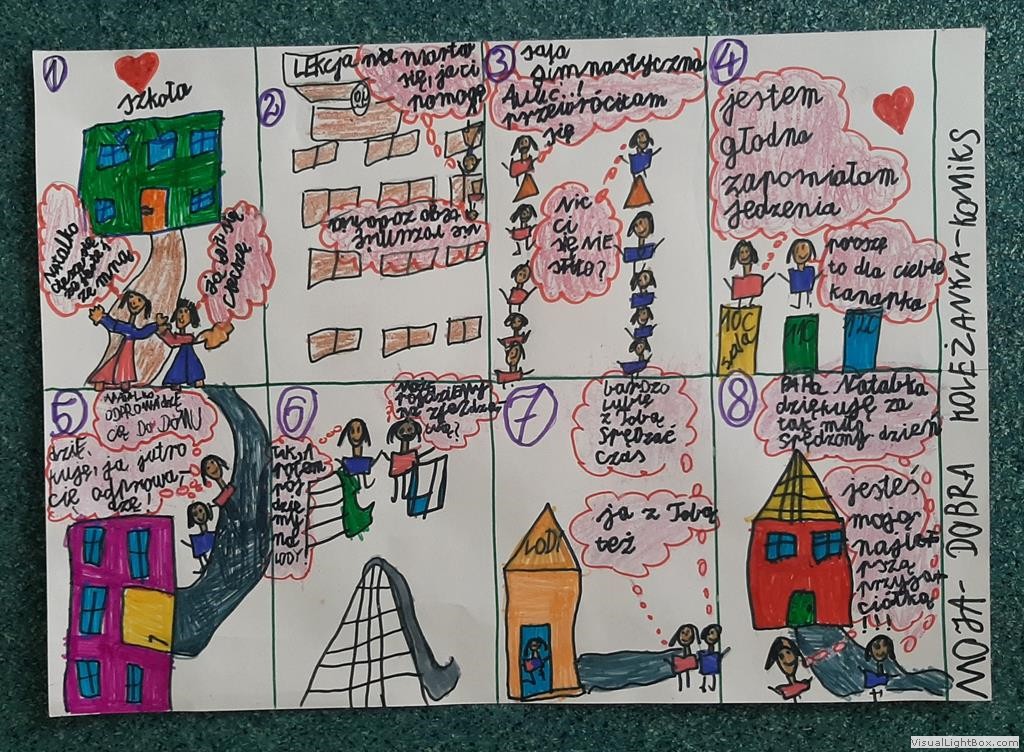 1
szkoła
Natalko
ze mną
2
LEKCJA
nie martw
się, ja ci
pomogę
nie rozumiem
tego zadania
3
sala
gimnastyczna
Auuć..!
przewróciłam
się
nic
ci
się NIE
stło?
4
jestem
głodna
zapomiałam
jedzenia
poroszę
to dla ciebie
kanapka
10C
sala
11C
12C
5
NATALKO
ODPROWADZIĆ
CIĘ DO DOMU
dzię-
kuję, ja jutro
cię odprowa-
dzę!
6
może
pójdziemy
na zjeżdżal-
nię?
tak, a
potem
pój-
dzie
my na
LODY!
7
bardzo
lubię
z Tobą
spędzać
czas
ja z Tobą
też
LODY
8
PAPA Natalka
dziękuję za
tak miły
spędzony dzień
jesteś
moją
najle-
pszą
przyja-
ciółką
!!!
MOJA- DOBRA KOLEŻANKA-KOMIKS
VisualLightBox.com